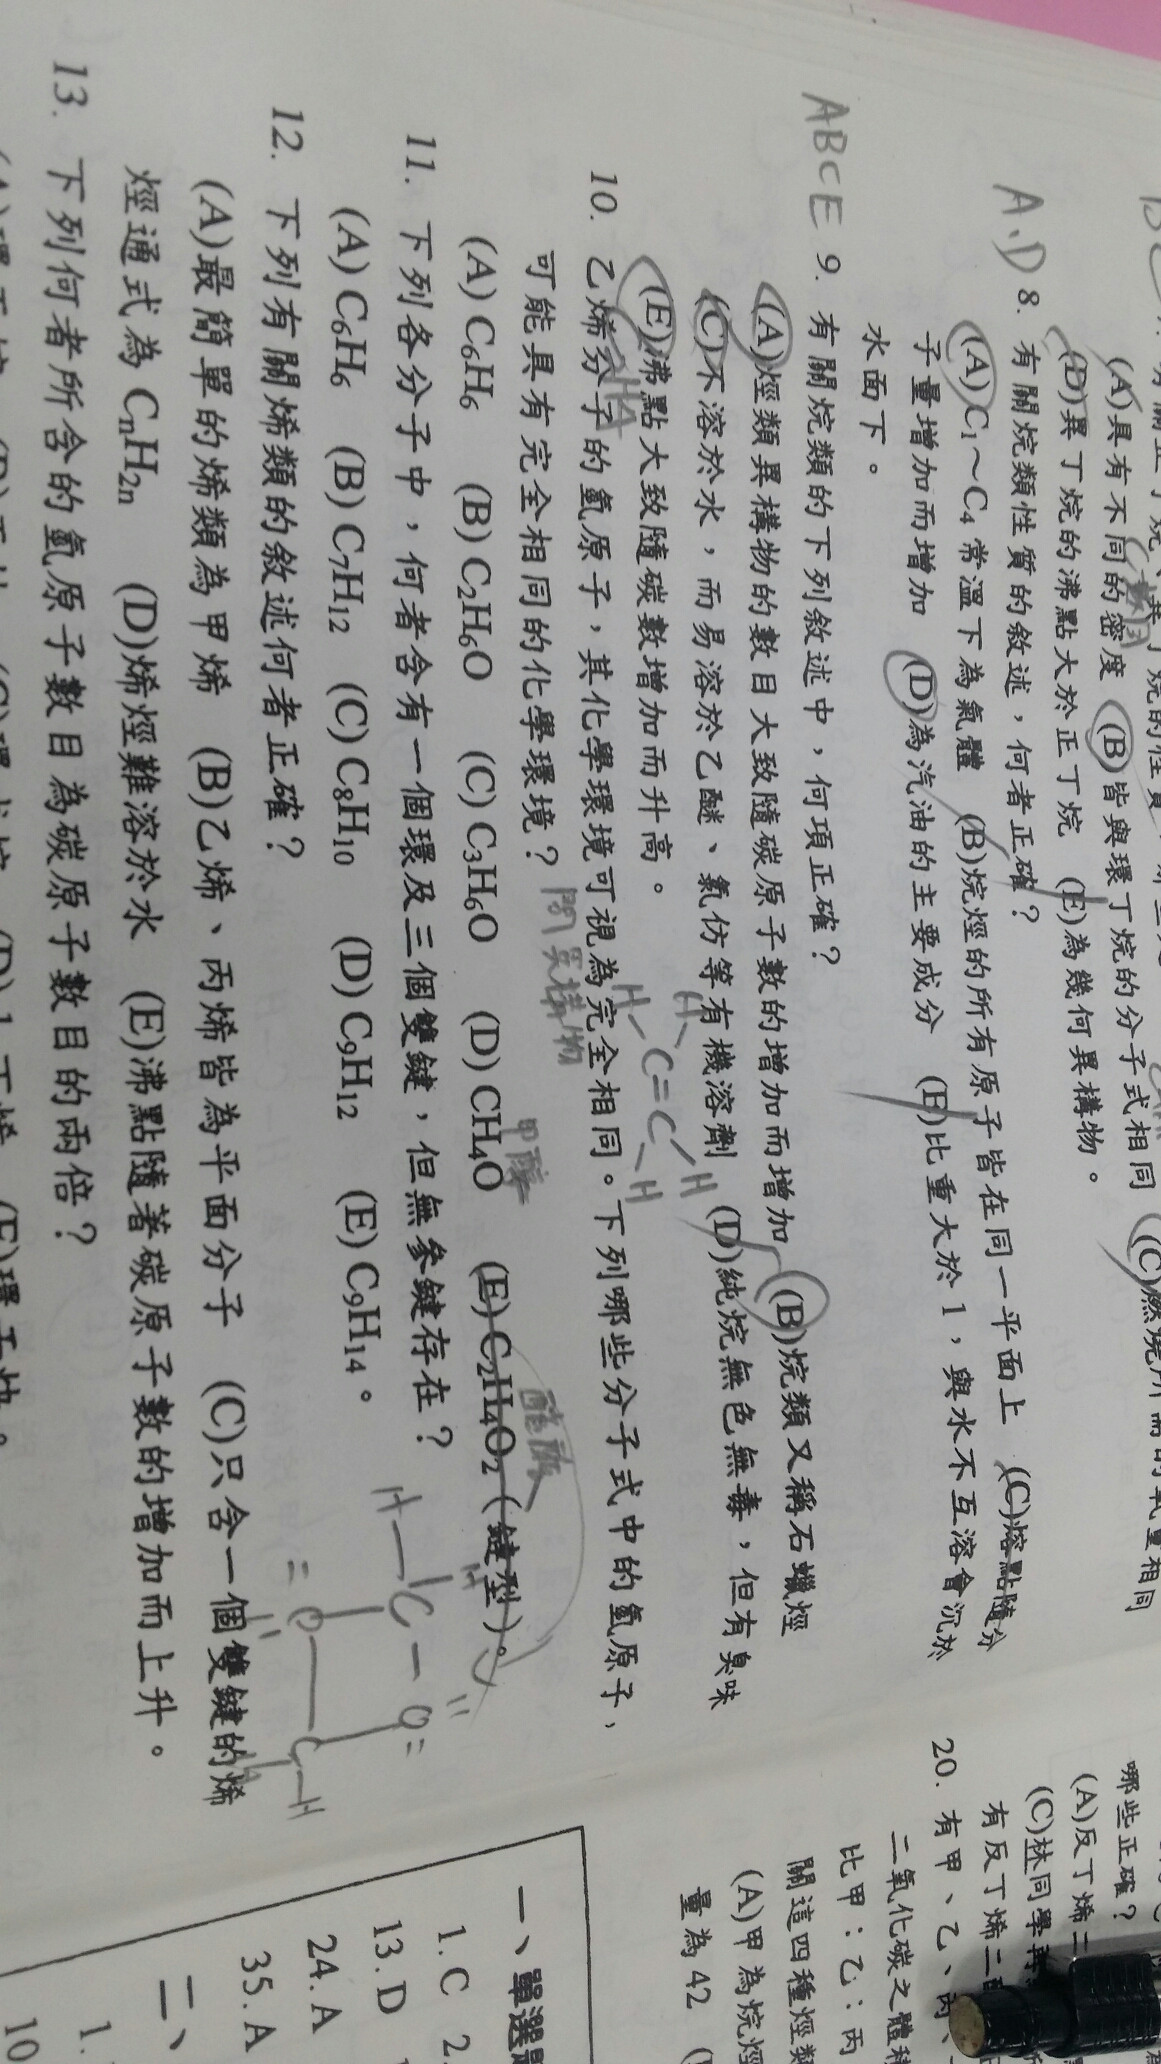 (A)具有不同的密度 (B)皆與環丁烷的分子式相同
(D)異丁烷的沸點大於正丁烷 (E)為幾何異構物。
A、D 8. 有關烷類性質的敘述，何者正確？
(A)C1～C4常溫下為氣體 (B)烷烴的所有原子皆在同一平面上 (C)熔點隨分
子量增加而增加 (D)為汽油的主要成分 (E)比重大於1，與水不互溶會沉於
水面下。
ABCE 9. 有關烷類的下列敘述中，何項正確？
(A)烴類異構物的數目大致隨碳原子數的增加而增加 (B)烷類又稱石蠟烴
(C)不溶於水，而易溶於乙醚、氯仿等有機溶劑 (D)純烷無色無毒，但有臭味
(E)沸點大致隨碳數增加而升高。
H H
C=C
H H
10. 乙烯分子的氫原子，其化學環境可視為完全相同。下列哪些分子式中的氫原子，
可能具有完全相同的化學環境？
同異構物
甲醇
醋酸
(A) C6H6 (B) C2H6O (C) C3H6O (D) CH4O (E) C2H4O2（鏈型）。
11. 下列各分子中，何者含有一個環及三個雙鍵，但無參鍵存在？
(A) C6H6 (B) C7H12 (C) C8H10 (D) C9H12 (E) C9H14。
12. 下列有關烯類的敘述何者正確？
(A)最簡單的烯類為甲烯 (B)乙烯、丙烯皆為平面分子 (C)只含一個雙鍵的烯
烴通式為 CnH2n (D)烯烴難溶於水 (E)沸點隨著碳原子數的增加而上升。
13. 下列何者所含的氫原子數目為碳原子數目的兩倍？
哪些正確？
(A)反丁烯二
(C)林同學再
有反丁烯二
20. 有甲、乙、丙、
二氧化碳之體積
比甲：乙：丙
關這四種烴類
(A)甲為烷烴
量為42
一、單選題
1. C 2.
13. D
24. A
35. A
二、
1.
10